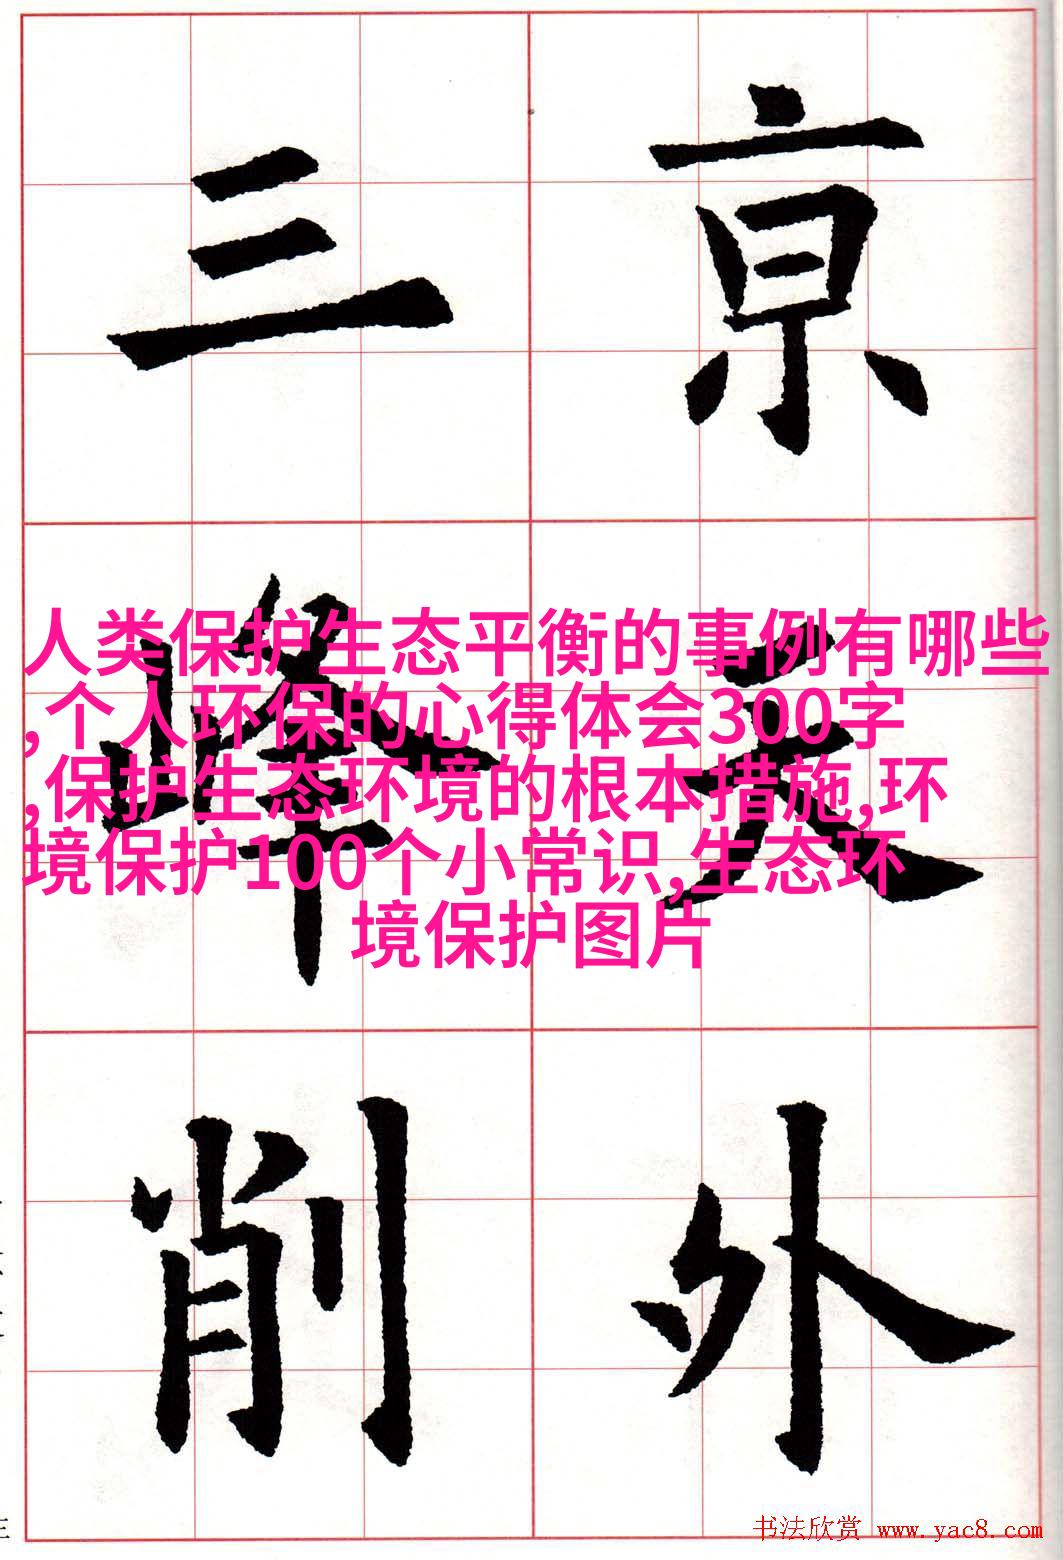 京天外
三峰削
人类保护生态平衡的事例有哪些
,个人环保的心得体会300字
,保护生态环境的根本措施,环
境保护100个小常识,生态环
境保护图片
书法欣赏 www.yac8.com